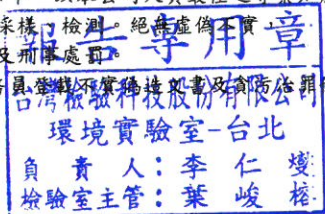 采樣、檢測。絕無虛偽不實,
及刑事處罰。
報告專用章
務員登載不實偽造文書及貪污治罪
台灣檢驗科技股份有限公司
環境實驗室-台北
負責人:李仁燮
檢驗室主管:葉峻榕